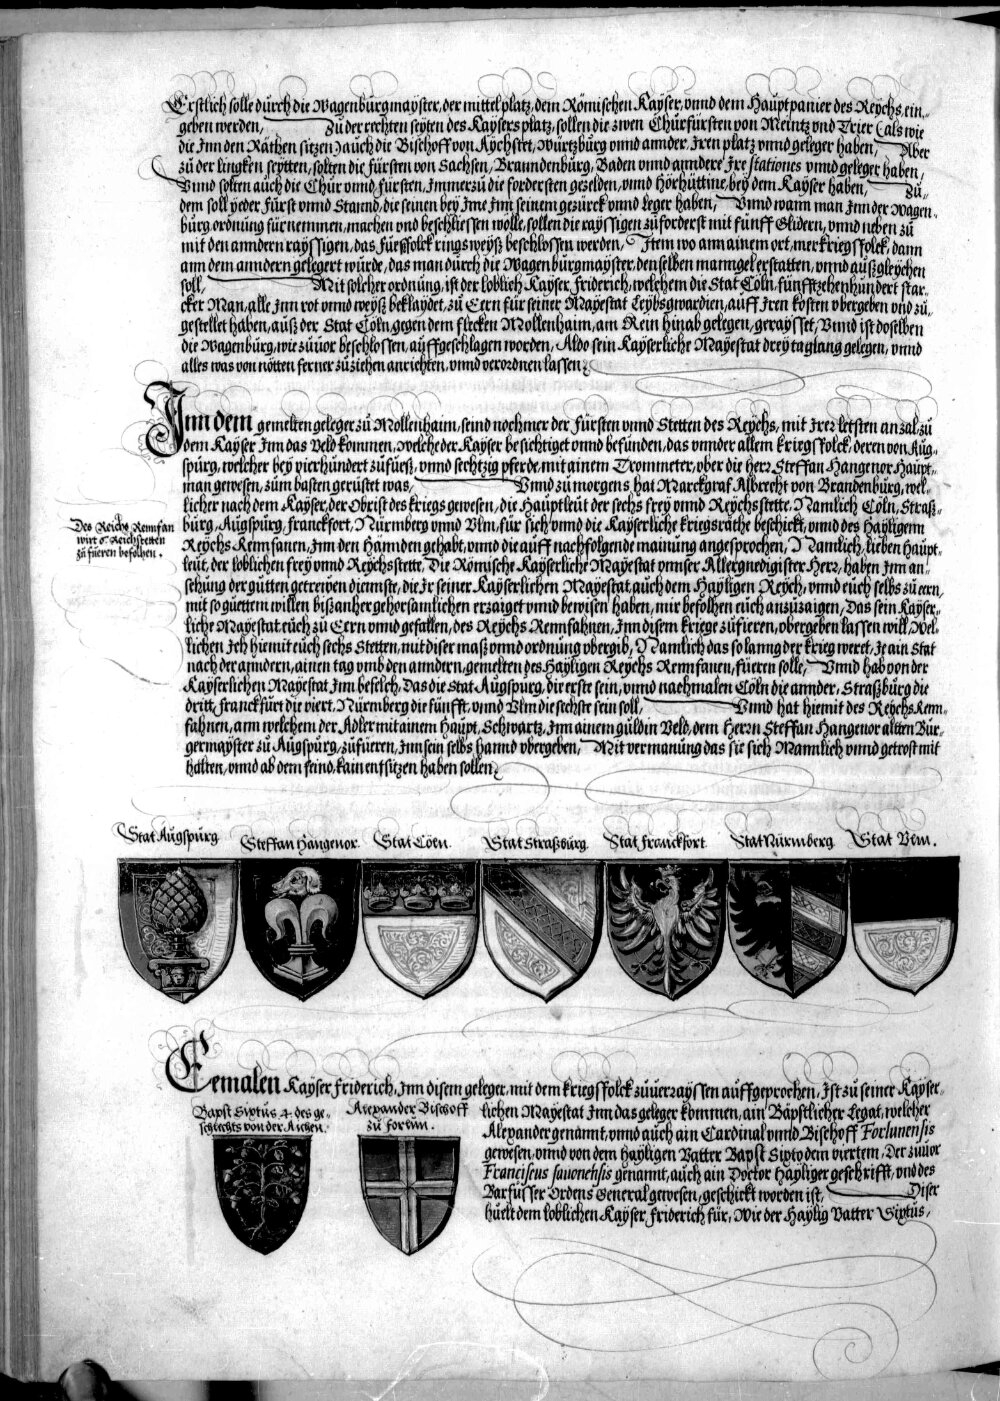 Erstlich solle durch die Wagenburgmayster, der mittel platz, dem Römischen Kayser, vnnd dem Hauptpanier des Reychs, ein-
geben werden, Zu der rechten seyten des Kaysers platz, sollen die zwen Churfürsten von Meintz vnd Trier (als wie
die Inn den Räthen sitzen) auch die Bischoff von Aychstet, Würtzburg vnnd annder, Iren platz vnnd geleger haben, Aber
zu der lingken seytten, solten die fürsten von Sachsen, Branndenburg, Baden vnnd anndere Ire stationes vnnd geleger haben,
Vnnd solten auch die Chur vnnd fürsten, Immerzu die fordersten gezelden, vnnd hörhüttine, bey dem Kayser haben, Zu-
dem soll yeder fürst vnnd Stannd, die seinen bey Ime Inn seinem gezürck vnnd leger haben, Vnnd wann man Inn der Wagen-
burg ordnung fürnemmen, machen vnd beschliessen wölle, sollen die rayssigen zuforderst mit fünff Glidern, vnnd neben zu
mit den anndern rayssigen, das fuessfolck rings weyß beschlossen werden, Item wo ann ainem ort, mer kriegsfolck, dann
ann dem anndern gelegert würde, das man durch die Wagenburgmayster, den selben manngel erstatten, vnnd außgleychen
soll, Mit solcher ordnung, ist der loblich Kayser, Friderich, welchem die Stat Cöln, fünfftzehenhundert star-
cker Man, alle Inn rot vnnd weyß beklaydet, zu Eern für seiner Mayestat Leybsgwardien, auff Iren kosten vbergeben vnd zu-
gestellet haben, auß der Stat Cöln, gegen dem flecken Mollenhaim, am Rein hinab gelegen, geraysset, Vnnd ist doselben
die Wagenburg, wie zuuor beschlossen, auffgeschlagen worden, Aldo sein Kayserliche Mayestat drey tag lang gelegen, vnnd
alles was von nötten ferner zu ziehen anrichten, vnnd verordnen lassen.
Inn dem gemelten geleger zu Mollenhaim, seind noch mer der fürsten vnnd Stetten des Reychs, mit Irer letsten anzal, zu
dem Kayser Inn das Veld kommen, welche der Kayser besichtiget vnnd befunden, das vnnder allem kriegsfolck, deren von Aug-
spurg, welcher bey vierhundert zufueß, vnnd sechtzig pferde, mit ainem Trommeter, vber die herr Steffan Hangenor Haupt-
man gewesen, zum basten gerüstet was, Vnnd zu morgens hat Marckgraf Albrecht von Brandenburg, wel-
licher nach dem Kayser, der Obrist des kriegs gewesen, die Hauptleüt der sechs frey vnnd Reychsstette, Namlich Cöln, Straß-
burg, Augspurg, Franckfort, Nürmberg vnnd Vlm, für sich vnnd die Kayserliche kriegsräthe beschickt, vnnd des Hayligenn
Reychs Rennfanen, Inn den Hännden gehabt, vnnd die auff nachfolgende mainung angesprochen, Namlich, lieben Haupt-
leüt, der loblichen frey vnnd Reychsstette, Die Römische Kayserliche Mayestat vnnser Allergnedigister Herr, haben Inn an-
sehung der gutten getrewen diennste, die Ir seiner Kayserlichen Mayestat, auch dem Hayligen Reych, vnnd euch selbs zu eern,
mit so guettem willen bißanher gehorsamlichen erzaiget vnnd bewisen haben, mir befolhen euch anzuzaigen, Das sein Kayser-
liche Mayestat euch zu Eern vnnd gefallen, des Reychs Rennfahnen, Inn disem kriege zufieren, vbergeben lassen will, Wel-
lichen Ich hiemit euch sechs Stetten, mit diser maß vnnd ordnung vbergib, Namlich das so lanng der krieg weret, Je ain Stat
nach der anndern, ainen tag vmb den anndern, gemelten des Hayligen Reychs Rennfanen, füeren solle, Vnnd hab von der
Kayserlichen Mayestat Inn befelch, Das die Stat Augspurg, die erste sein, vnnd nachmalen Cöln die annder, Straßburg die
dritt, Franckfurt die viert, Nürmberg die fünfft, vnnd Vlm die sechste sein soll, Vnnd hat hiemit des Reychs Renn-
fahnen, ann welchem der Adler mit ainem Haupt, Schwartz, Inn ainem guldin Veld, dem Herrn Steffan Hangenor altten Bur-
germayster zu Augspurg, zufüeren, Inn sein selbs hannd vbergeben, Mit vermanung das sie sich Mannlich vnnd getrost mit
halten, vnnd ab dem feind, kain entsitzen haben sollen.
Des Reichs Rennfan
wirt 6 Reichstetten
zu füeren befolhen.
Stat Augspurg
Steffan Hangenor.
Stat Cöln.
Stat Straßburg.
Stat Franckfort.
Stat Nürmberg.
Stat Vlm.
Eemalen Kayser Friderich, Inn disem geleger, mit dem kriegsfolck zuuerrayssen auffgeprochen, Ist zu seiner Kayser-
Bapst Sixtus 4. des ge-
schlechts von der Aichen.
Alexander Bischoff
zu Forlun.
lichen Mayestat Inn das geleger kommen, ain Bäpstlicher Legat, welcher
Alexander genannt, vnnd auch ain Cardinal vnnd Bischoff Forlunensis
gewesen, vnnd von dem Hayligen Vatter Bapst Sixto dem viertem, Der zuuor
Franciscus sauonensis genannt, auch ain Doctor Hayliger geschrifft, vnd des
Barfüsser Ordens General gewesen, geschickt worden ist, Diser
huelt dem loblichen Kayser Friderich für, Wie der Haylig Vatter Sixtus,